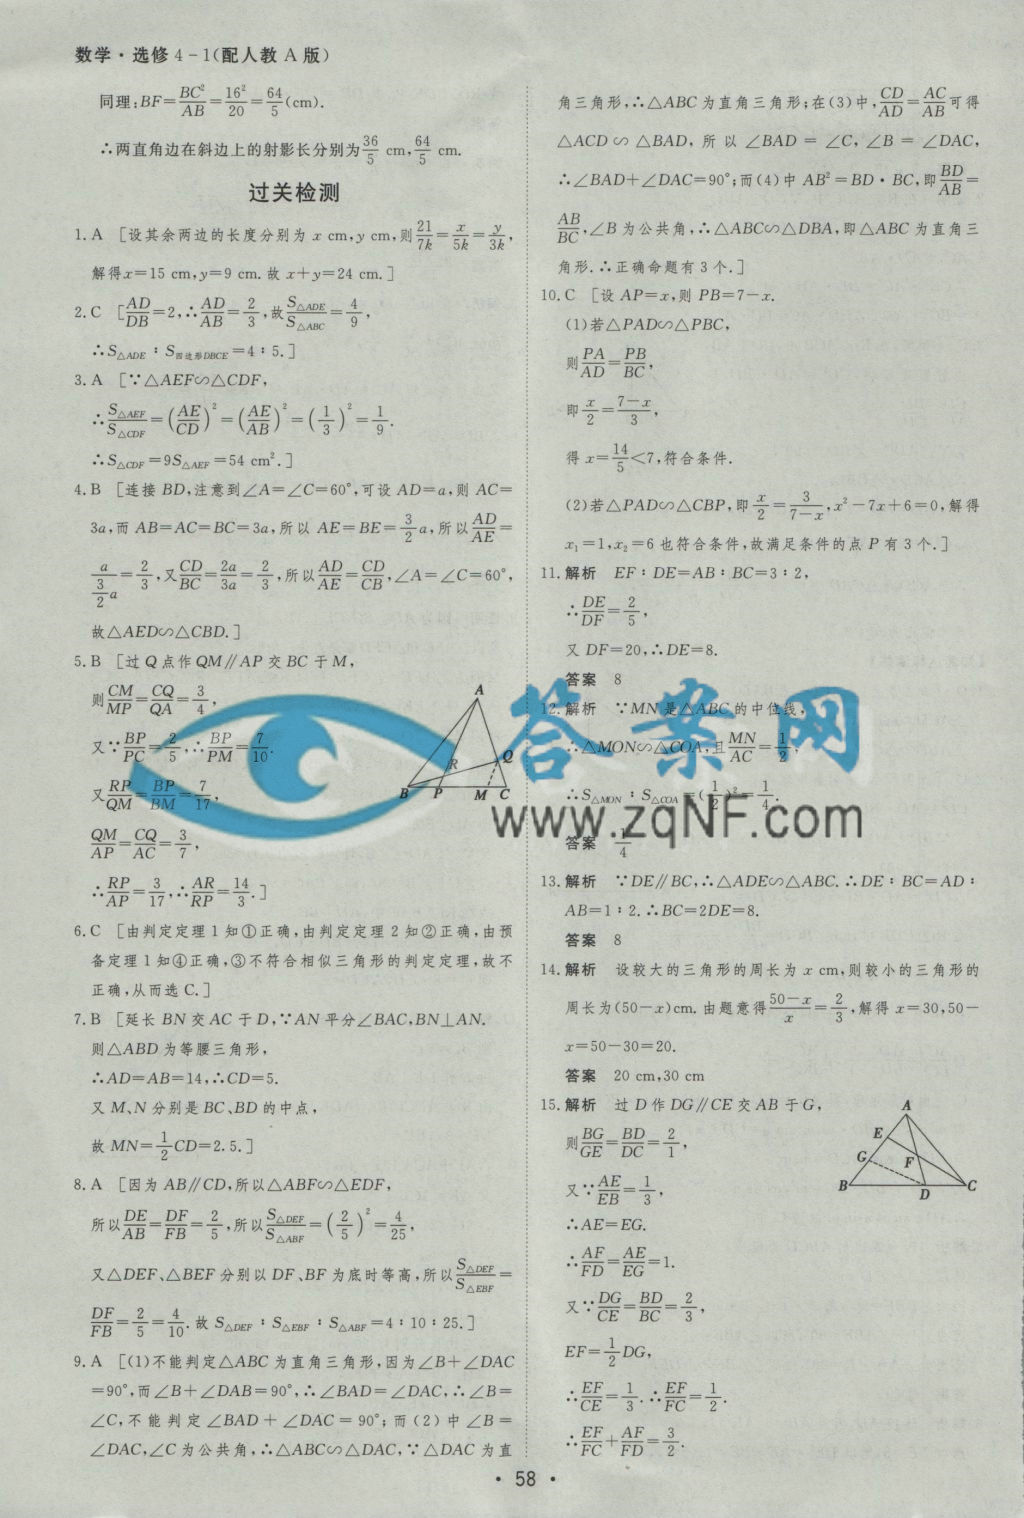 数学·选修4-1(配人教A版)
同理:BF=BC²/AB=16²/20=64/5(cm).
∴两直角边在斜边上的射影长分别为36/5 cm,64/5 cm.
过关检测
1.A [设其余两边的长度分别为x cm,y cm,则21/7k=x/5k=y/3k,
解得x=15 cm,y=9 cm.故x+y=24 cm.]
2.C [AD/DB=2,∴AD/AB=2/3,故S△ADE/S△ABC=4/9,
∴S△ADE∶S四边形DBCE=4∶5.]
3.A [∵△AEF∽△CDF,
∴S△AEF/S△CDF=(AE/CD)²=(AE/AB)²=(1/3)²=1/9.
∴S△CDF=9S△AEF=54 cm².]
4.B [连接BD,注意到∠A=∠C=60°,可设AD=a,则AC=
3a,而AB=AC=BC=3a,所以AE=BE=3/2a,所以AD/AE=
a/(3/2 a)=2/3,又CD/BC=2a/3a=2/3,所以AD/AE=CD/CB,∠A=∠C=60°,
故△AED∽△CBD.]
5.B [过Q点作QM∥AP交BC于M,
则CM/MP=CQ/QA=3/4,
又∵BP/PC=2/5,∴BP/PM=7/10.
又RP/QM=BP/BM=7/17,
QM/AP=CQ/AC=3/7,
∴RP/AP=3/17,∴AR/RP=14/3.]
A
Q
R
B P M C
6.C [由判定定理1知①正确,由判定定理2知②正确,由预
备定理1知④正确,③不符合相似三角形的判定定理,故不
正确,从而选C.]
7.B [延长BN交AC于D,∵AN平分∠BAC,BN⊥AN.
则△ABD为等腰三角形,
∴AD=AB=14,∴CD=5.
又M、N分别是BC、BD的中点,
故MN=1/2CD=2.5.]
8.A [因为AB∥CD,所以△ABF∽△EDF,
所以DE/AB=DF/FB=2/5,所以S△DEF/S△ABF=(2/5)²=4/25,
又△DEF、△BEF分别以DF、BF为底时等高,所以S△DEF/S△EBF=
DF/FB=2/5=4/10.故S△DEF∶S△EBF∶S△ABF=4∶10∶25.]
9.A [(1)不能判定△ABC为直角三角形,因为∠B+∠DAC
=90°,而∠B+∠DAB=90°,∴∠BAD=∠DAC,∴∠B=
∠C,不能判定∠BAD+∠DAC=90°;而(2)中∠B=
∠DAC,∠C为公共角,∴△ABC∽△DAC,∵△DAC为直
角三角形,∴△ABC为直角三角形;在(3)中,CD/AD=AC/AB可得
△ACD∽△BAD,所以∠BAD=∠C,∠B=∠DAC,
∴∠BAD+∠DAC=90°;而(4)中AB²=BD·BC,即BD/AB=
AB/BC,∠B为公共角,∴△ABC∽△DBA,即△ABC为直角三
角形.∴正确命题有3个.]
10.C [设AP=x,则PB=7-x.
(1)若△PAD∽△PBC,
则PA/AD=PB/BC,
即x/2=(7-x)/3,
得x=14/5<7,符合条件.
(2)若△PAD∽△CBP,即x/2=3/(7-x),x²-7x+6=0,解得
x₁=1,x₂=6也符合条件,故满足条件的点P有3个.]
11.解析 EF∶DE=AB∶BC=3∶2,
∴DE/DF=2/5,
又DF=20,∴DE=8.
答案 8
12.解析 ∵MN是△ABC的中位线,
∴△MON∽△COA,且MN/AC=1/2,
∴S△MON∶S△COA=(1/2)²=1/4.
答案 1/4
答案网
www.zqNF.com
13.解析 ∵DE∥BC,∴△ADE∽△ABC.∴DE∶BC=AD∶
AB=1∶2.∴BC=2DE=8.
答案 8
14.解析 设较大的三角形的周长为x cm,则较小的三角形的
周长为(50-x)cm.由题意得(50-x)/x=2/3,解得x=30,50-
x=50-30=20.
答案 20 cm,30 cm
15.解析 过D作DG∥CE交AB于G,
则BG/GE=BD/DC=2/1,
又∵AE/EB=1/3,
∴AE=EG.
∴AF/FD=AE/EG=1.
又∵DG/CE=BD/BC=2/3,
EF=1/2DG,
∴EF/CE=1/3.∴EF/FC=1/2.
∴EF/FC+AF/FD=3/2.
A
E
G F
B D C
·58·